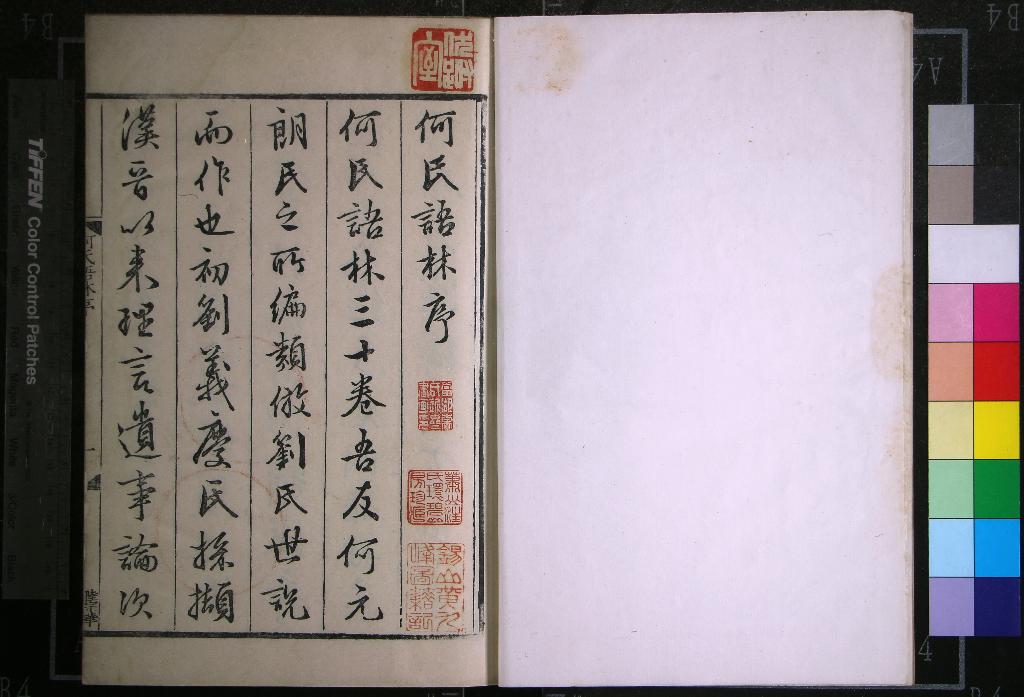 何氏語林序
何氏語林三十卷吾友何元
朗氏之所編類倣劉氏世說
而作也初劉義慶氏採擷
漢晉以來理言遺事論次
TIFFEN Color Control Patches
A4
B4